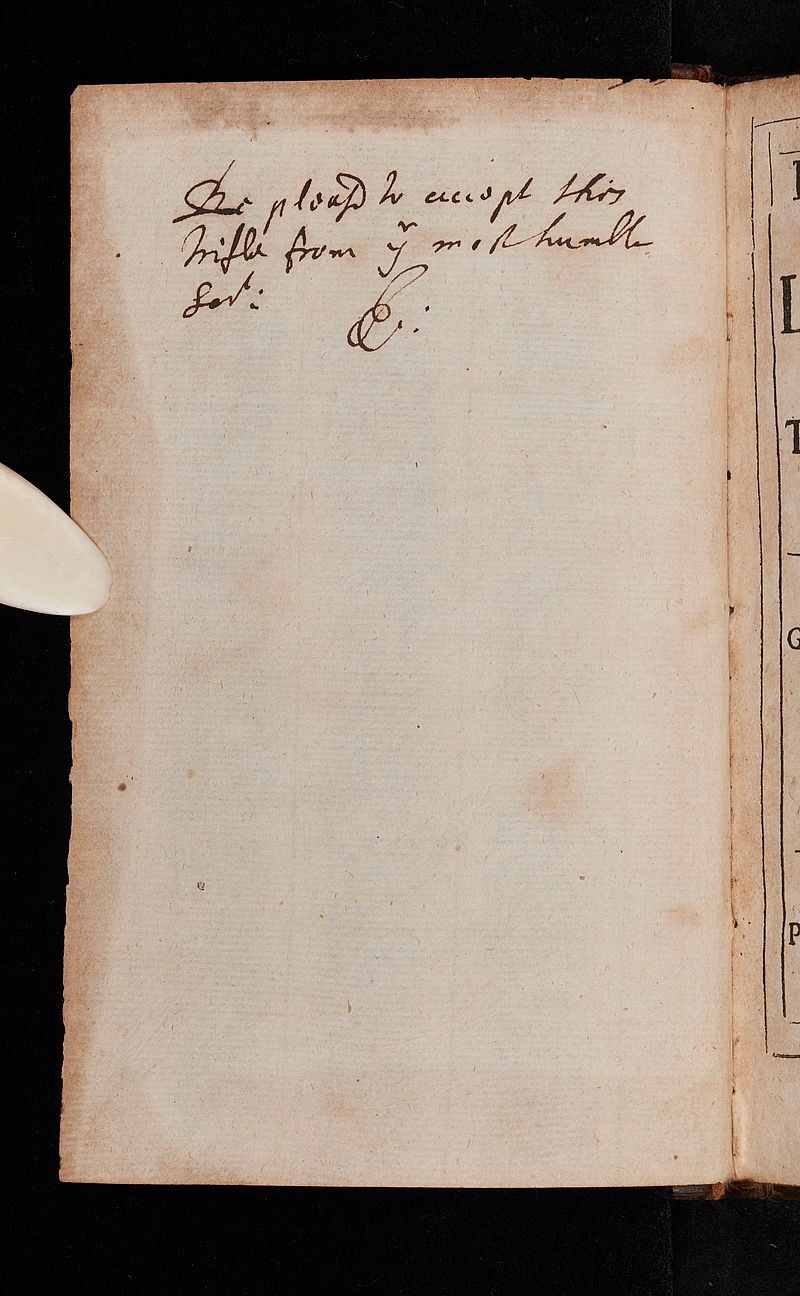 Be pleasd to accept this
trifle from yr most humble
Servt:
L
T
G
P